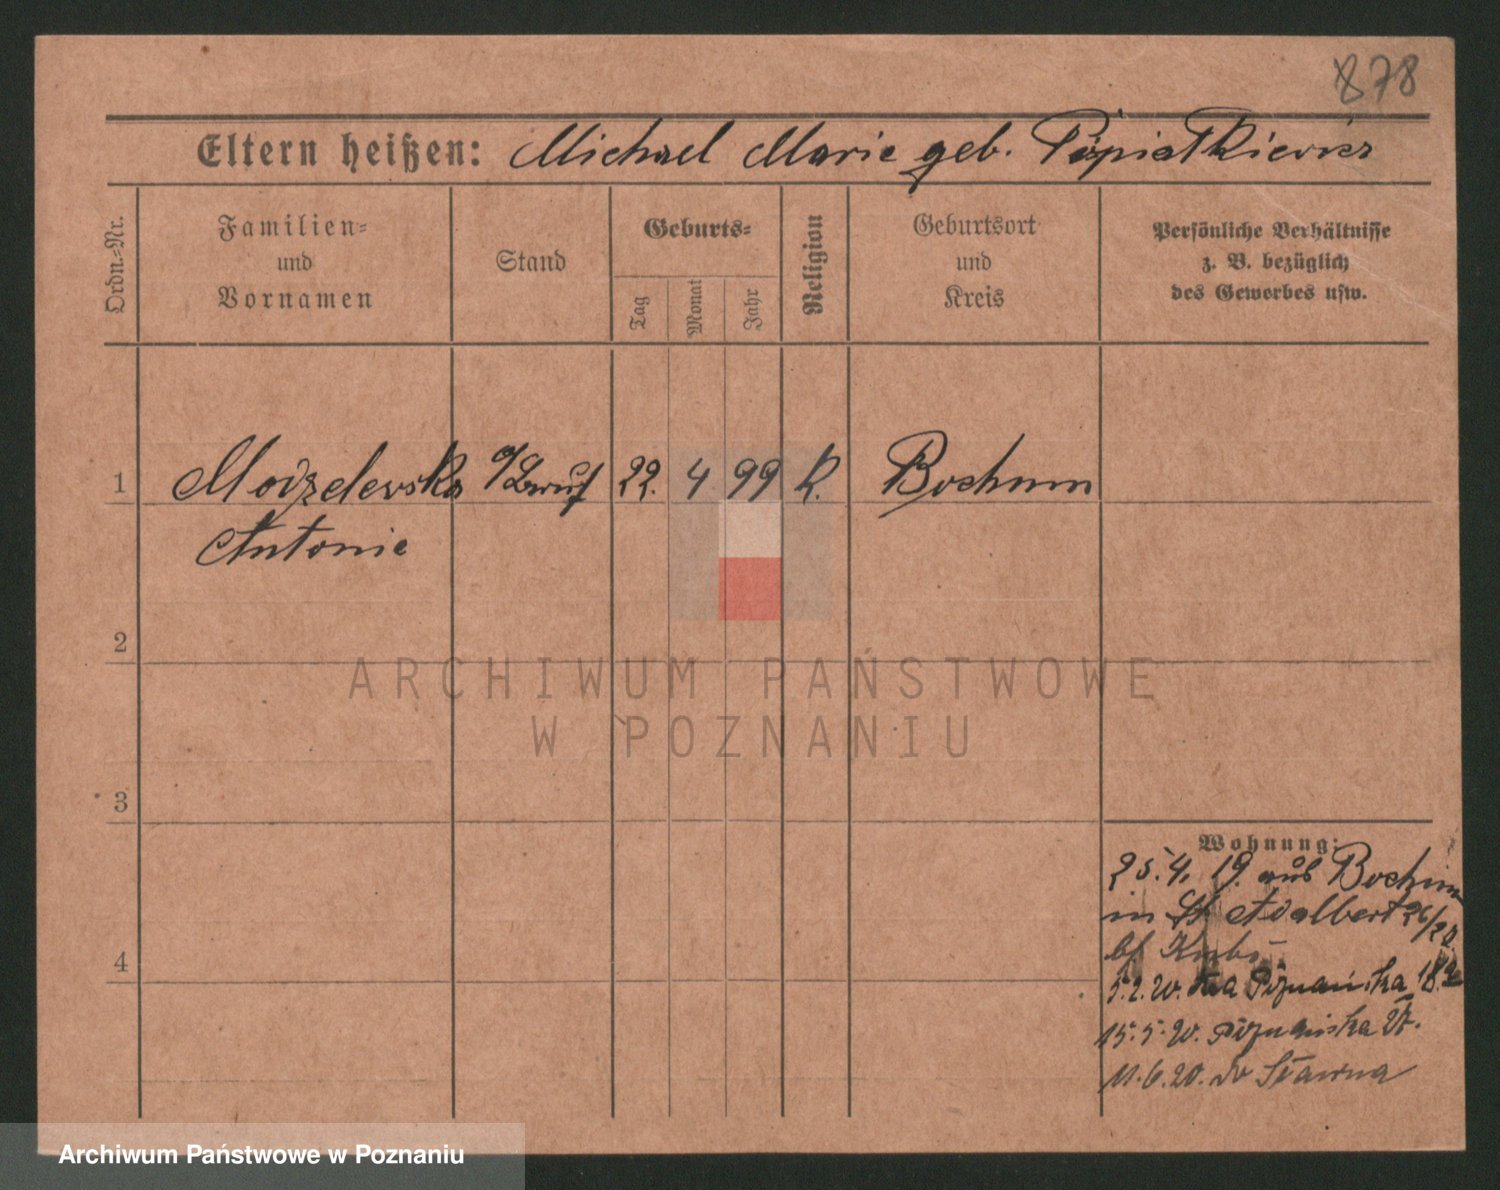 878
Eltern heißen: Michael Marie geb.
Ordn.-Nr.
Familien-
und
Vornamen
Stand
Geburts-
Tag
Monat
Jahr
Religion
Geburtsort
und
Kreis
Persönliche Verhältnisse
z. B. bezüglich
des Gewerbes usw.
1
Modzelewska
22. 4 99 K. Bochum
Antonie
2
3
4
Wohnung:
25.4.19. aus Bochum
in St Adalbert 26/28
bf
5.2.20. Poznańska
15.5.20. Poznańska
11.6.20. Stawna
ARCHIWUM PAŃSTWOWE
W POZNANIU
Archiwum Państwowe w Poznaniu